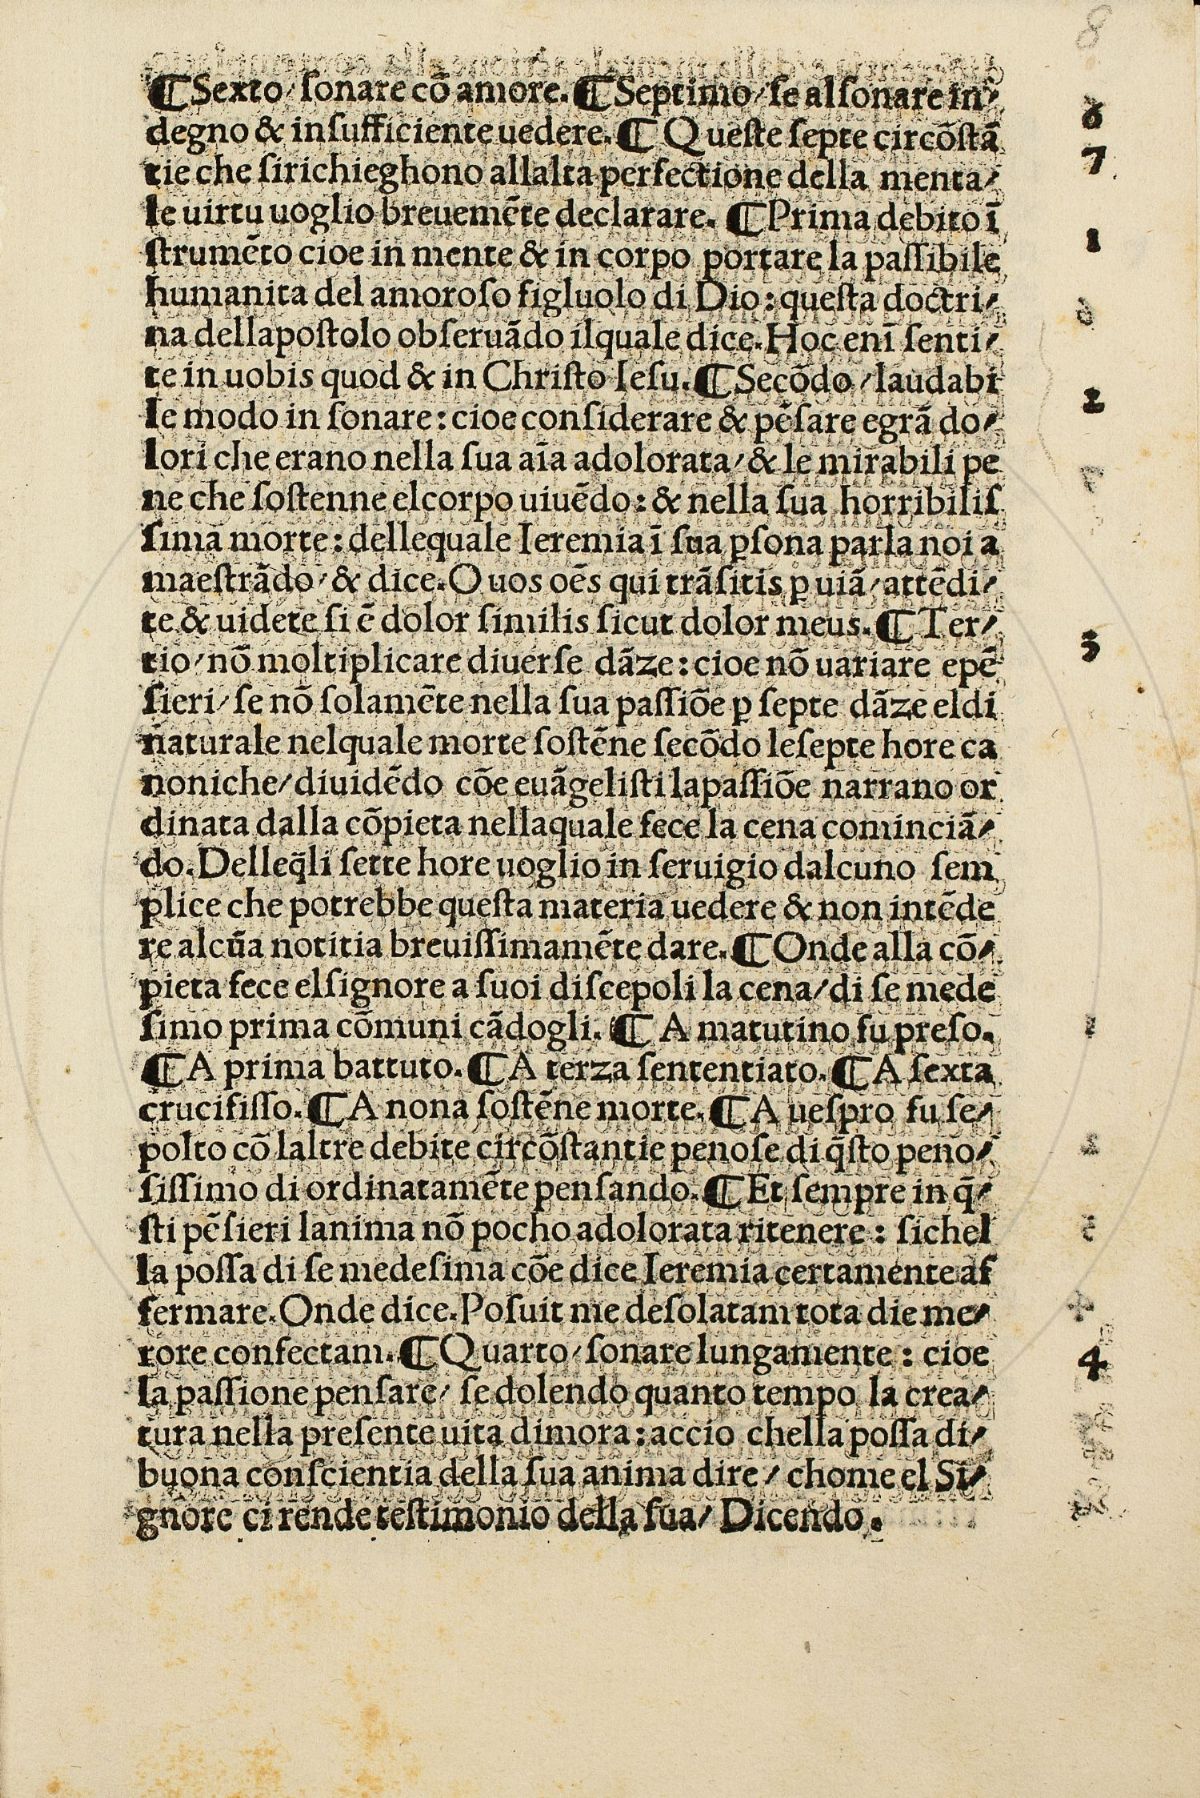 8
¶Sexto/ſonare cō amore.¶Septimo/ſe alſonare in/
degno & inſufficiente uedere.¶Queſte ſepte circōſtā
tie che ſirichieghono allalta perfectione della menta/
le uirtu uoglio breuemēte declarare. ¶Prima debito ī
ſtrumēto cioe in mente & in corpo portare la paſſibile
humanita del amoroſo figluolo di Dio:queſta doctri/
na dellapoſtolo obſeruādo ilquale dice.Hoc enī ſenti/
te in uobis quod & in Chriſto Ieſu.¶Secōdo/laudabi
le modo in ſonare:cioe conſiderare & pēſare egrā do/
lori che erano nella ſua aīa adolorata/& le mirabili pe
ne che ſoſtenne elcorpo uiuēdo:& nella ſua horribiliſ
ſima morte:dellequale Ieremia ī ſua ꝑſona parla noi a
maeſtrādo/& dice.O uos oēs qui trāſitis ꝑ uiā/attēdi/
te & uidete ſi ē dolor ſimilis ſicut dolor meus.¶Ter/
tio/nō moltiplicare diuerſe dāze:cioe nō uariare epē
ſieri/ſe nō ſolamēte nella ſua paſſiōe ꝑ ſepte dāze eldi
naturale nelquale morte ſoſtēne ſecōdo leſepte hore ca
noniche/diuidēdo cōe euāgeliſti lapaſſiōe narrano or
dinata dalla cōpieta nellaquale fece la cena cominciā/
do.Delleq̄li ſette hore uoglio in ſeruigio dalcuno ſem
plice che potrebbe queſta materia uedere & non intēde
re alcūa notitia breuiſſimamēte dare.¶Onde alla cō/
pieta fece elſignore a ſuoi diſcepoli la cena/di ſe mede
ſimo prima cōmuni cādogli.¶A matutino fu preſo.
¶A prima battuto.¶A terza ſententiato.¶A ſexta
crucifiſſo.¶A nona ſoſtēne morte.¶A ueſpro fu ſe/
polto cō laltre debite circōſtantie penoſe di q̄ſto peno/
ſiſſimo di ordinatamēte penſando.¶Et ſempre in q̄/
ſti pēſieri lanima nō pocho adolorata ritenere: ſichel
la poſſa di ſe medeſima cōe dice Ieremia certamente af
fermare.Onde dice.Poſuit me deſolatam tota die me/
rore confectam.¶Quarto/ſonare lungamente: cioe
la paſſione penſare/ ſe dolendo quanto tempo la crea/
tura nella preſente uita dimora:accio chella poſſa di/
buona conſcientia della ſua anima dire/ chome el Si/
gnore ci rende teſtimonio della ſua/ Dicendo.
6
7
1
2
3
4